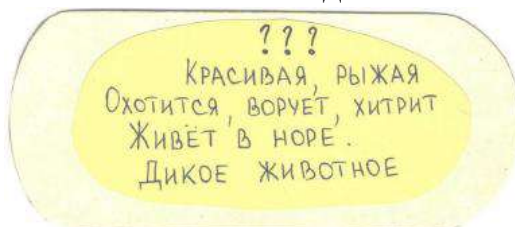 ? ? ?
КРАСИВАЯ, РЫЖАЯ
ОХОТИТСЯ, ВОРУЕТ, ХИТРИТ
ЖИВЁТ В НОРЕ.
ДИКОЕ ЖИВОТНОЕ